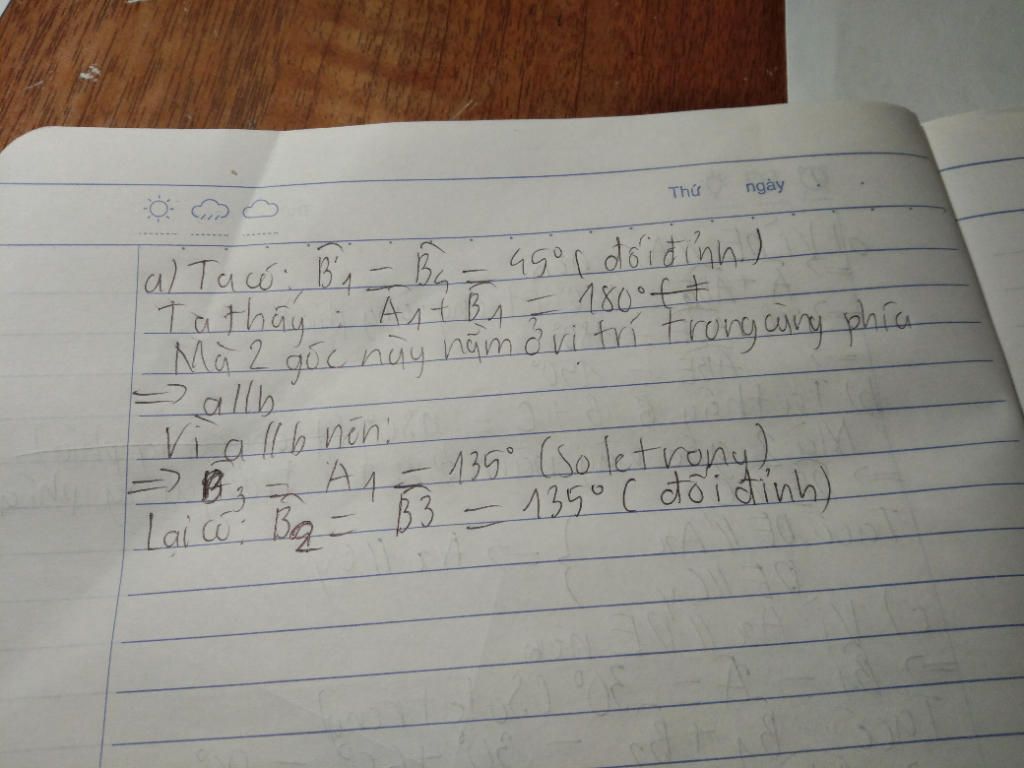 Thứ ngày
a) Ta có: B̂1 = B̂4 = 45° (đối đỉnh)
Ta thấy: Â1 + B̂1 = 180°
Mà 2 góc này nằm ở vị trí trong cùng phía
=> a//b
Vì a//b nên:
=> B̂3 = A1 = 135° (So le trong)
Lại có: B̂2 = B̂3 = 135° (đối đỉnh)